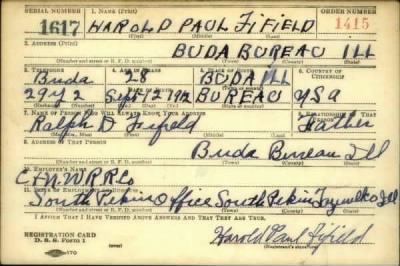 SERIAL NUMBER 1. NAME (Print) ORDER NUMBER
1617 HAROLD PAUL FIFIELD 1415
(First) (Middle) (Last)
2. ADDRESS (Print)
BUDA BUREAU ILL
(Number and street or R. F. D. number) (Town) (County) (State)
3. TELEPHONE 4. AGE IN YEARS 5. PLACE OF BIRTH 6. COUNTRY OF CITIZENSHIP
Buda 28 BUDA ILL
29Y2 Sept 1912 BUREAU USA
7. NAME OF PERSON WHO WILL ALWAYS KNOW YOUR ADDRESS
Ralph D Fifield Father
8. ADDRESS OF THAT PERSON
Buda Bureau Ill
(Number and street or R. F. D. number) (Town) (County) (State)
9. EMPLOYER'S NAME
C & N W R R Co
South Pekin Office South Pekin Tazwell Ill
(Number and street or R. F. D. number) (Town) (County) (State)
I AFFIRM THAT I HAVE VERIFIED ABOVE ANSWERS AND THAT THEY ARE TRUE.
REGISTRATION CARD
D. S. S. Form 1 Harold Paul Fifield